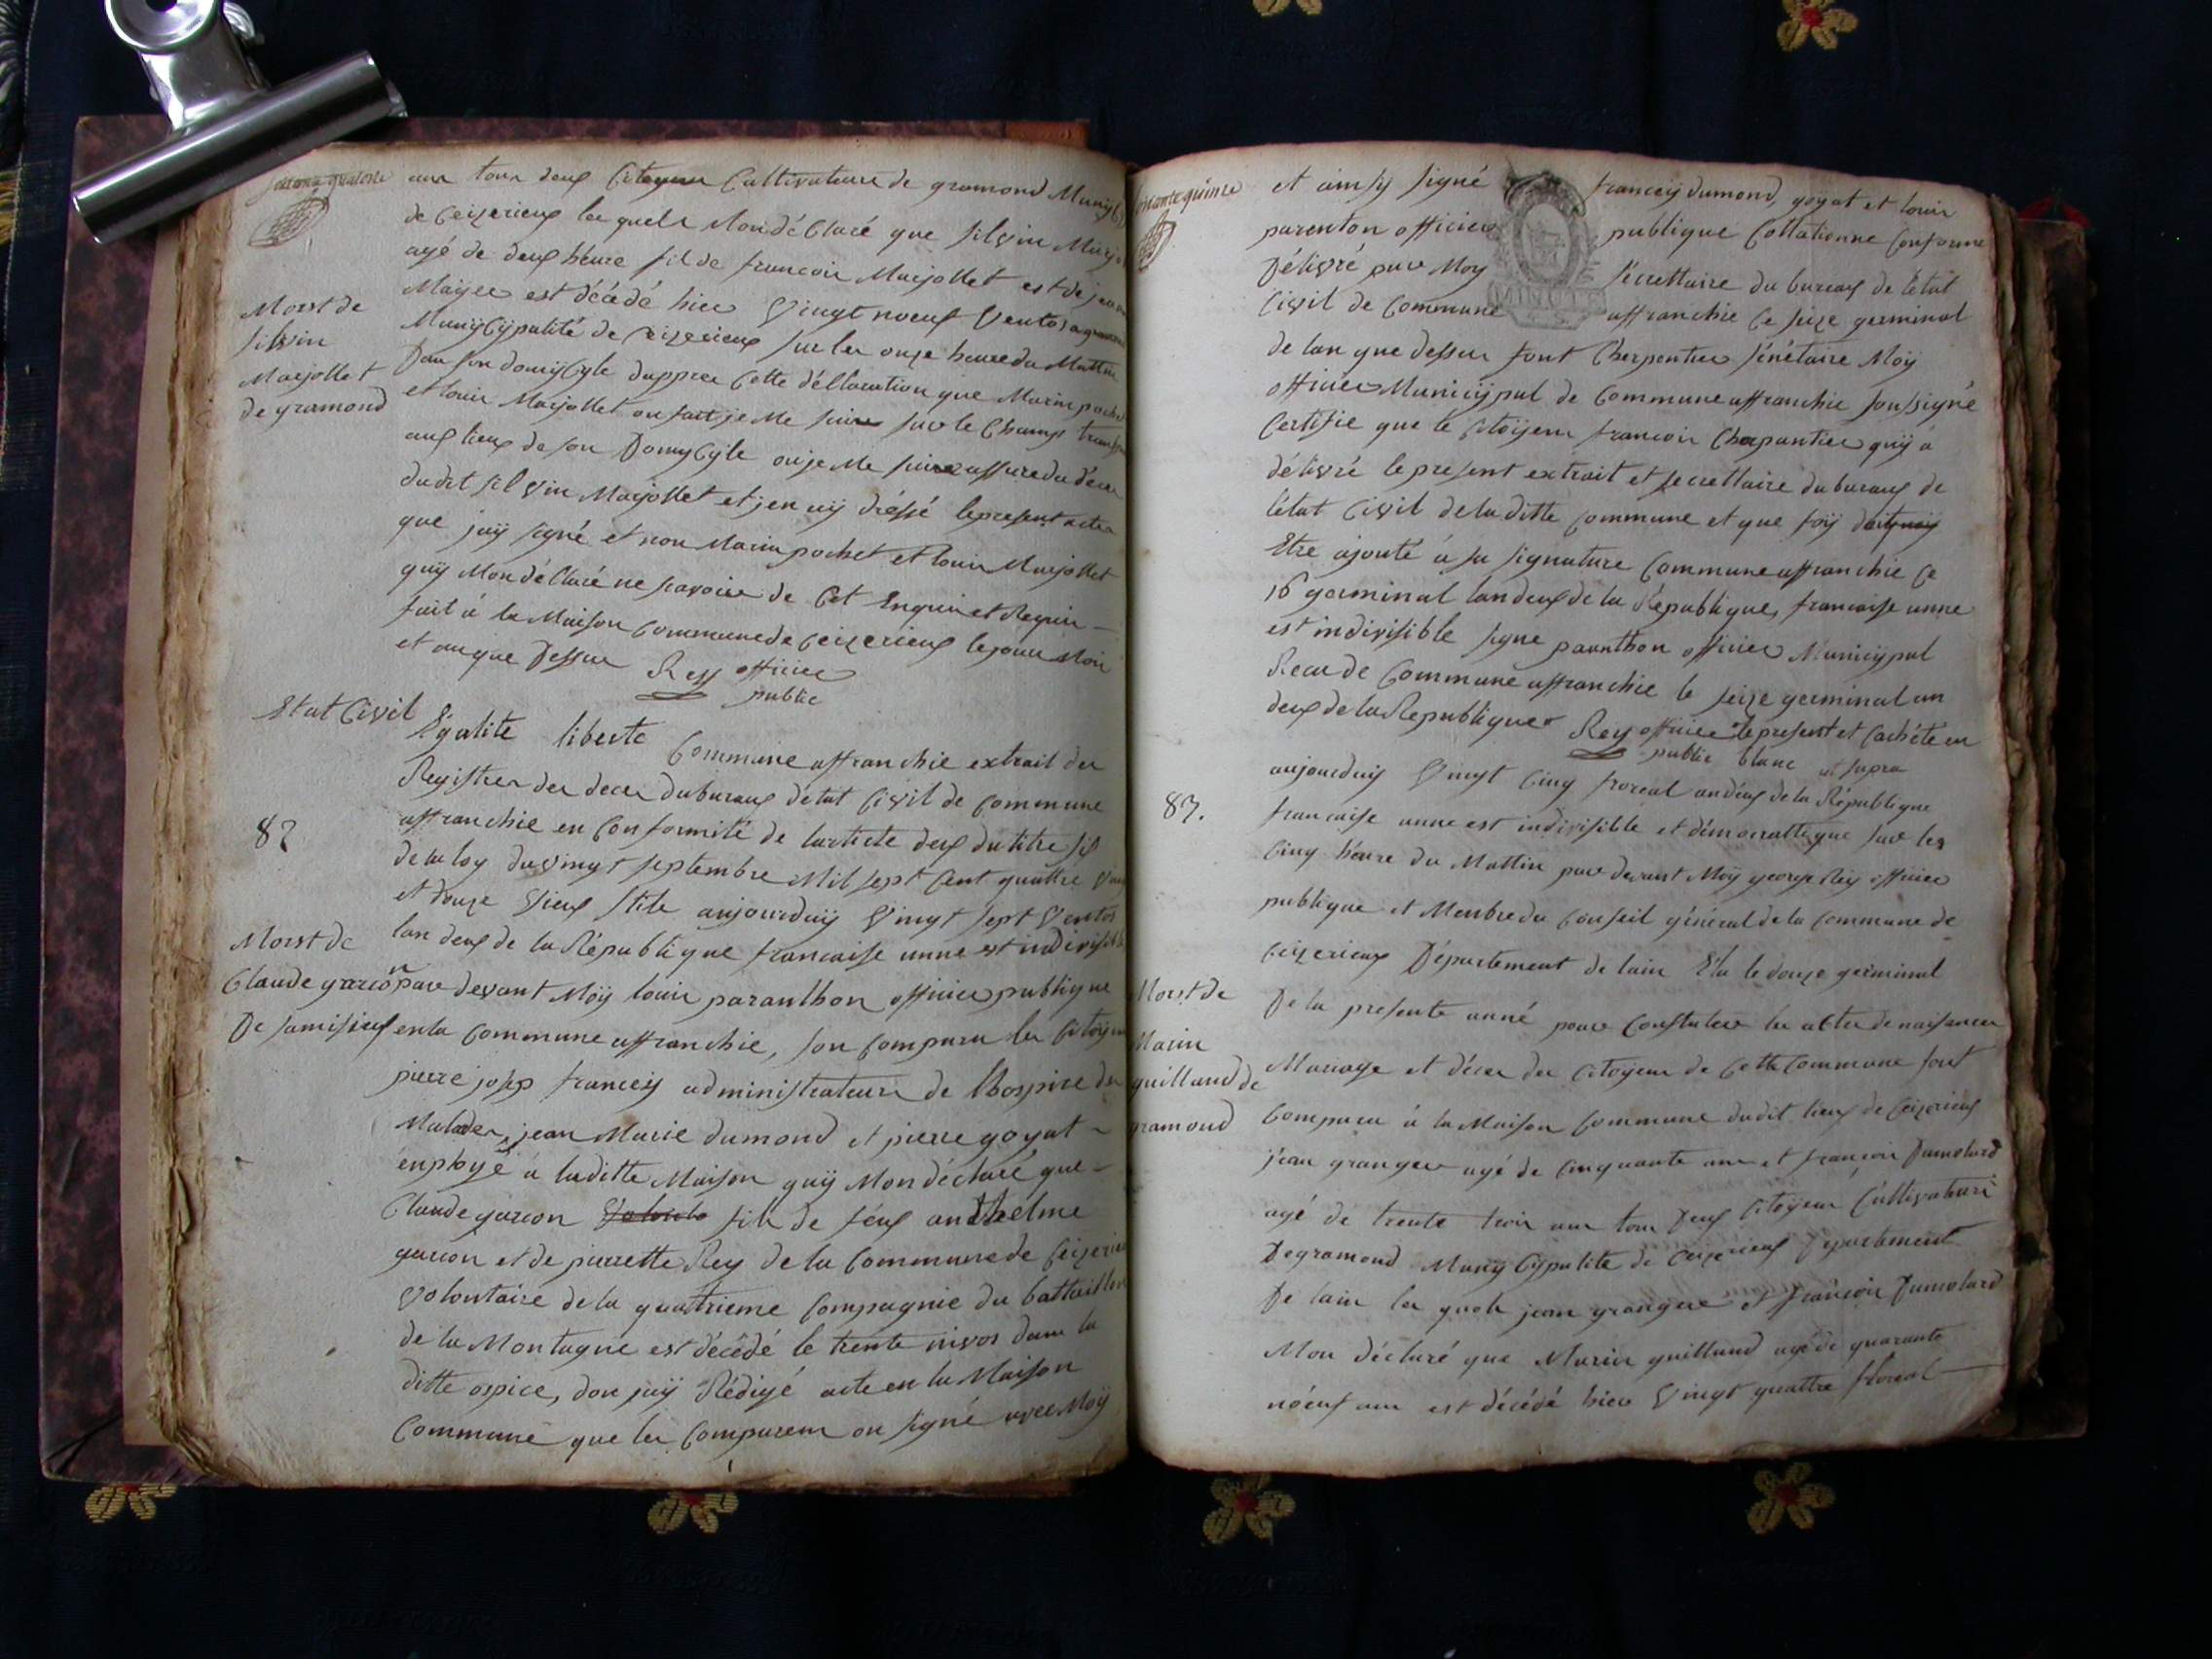 soixante quatorze
ans tous deux Citoyens Cultivateurs de gramond Munycy
de Ceizerieux les quels Mon déClaré que silvin Marjo
agé de deux heure fil de francois Marjollet est de jean
Mayer est décédé hier Vingt noeuf Ventos a gramond
Munyçypalité de Ceizerieux sur les onze heure du Mattin
Dans son domyCyle dappres Cette déClaration que Marin pochet
et louis Marjollet on fait je Me suis sur le Champ transp
aux lieux de son DomyCyle ou je Me suis assure du déces
dudit silvin Marjollet et jen aÿ dréssé le present acte
que jaÿ signé et non Marin pochet et louis Marjollet
quÿ Mon déClaré ne savoire de Cet Enquis et Requis
fait à la Maison Commune de Ceizerieux le jour Moi
et an que Dessus Rey officier
public
Mort de
silvin
Marjollet
de gramond
Etat Civil
Egalite liberte Commune affranchie extrait des
Registres des deces du buraux détat Civil de Commune
affranchie en Conformité de larticle deux du titre six
de la loy du vingt septembre Mil sept Cent quattre Vin
et douze Vieux stile aujourduÿ Vingt sept Ventos
lan deux de la République francaise unne est indivisible
par devant Moÿ louis paranthon officier publique
en la Commune affranchie, son Comparu les Citoyens
pierre josep francey administrateur de lhospice des
Malades, jean Marie dumond et pierre goyat
enployé a laditte Maison quÿ Mon déclaré que
Claude garcon fils de féux anthelme
garcon et de pierrette Rey de la Commune de Ceizerieux
Volontaire de la quattrieme Compagnie du battaillon
de la Montagne est décédé le trente nivos dans la
ditte ospice, don jaÿ Rédigé acte en la Maison
Commune que les Comparens on signé avec Moÿ
82
Mort de
Claude garcon
De
soixante quinze
et ainsÿ signé franceÿ dumond, goÿat et louis
parenton officier publique Collationne Conforme
Délivré par Moÿ sécrettaire du buraux de létat
Civil de Commune affranchie Ce seize germinal
MINUTE
de lan que dessus sont Cherpentier sécrétaire Moÿ
officier Municÿpal de Commune affranchie soussigné
Certifie que le Citoÿens francois Cherpantier quÿ a
délivré le present extrait et secrettaire du buraux de
létat Civil de la ditte Commune et que foÿ doit
Etre ajouté à sa signature Commune affranchie Ce
16 germinal lan deux de la République, francaise unne
est indivisible signe paranthon officier Municÿpal
Recu de Commune affranchie le seize germinal an
deux de la Republique Rey officier le present et Cachété en
public blanc ut supra
87.
aujourduÿ Vingt Cinq floreal an deux de la République
francaise unne est indivisible et démocrattique sur les
Cinq heure du Mattin par devant Moÿ george Reÿ officier
publique et Menbre du Conseil général de la Commune de
Ceizerieux Département de lain Elu le douze germinal
De la presente anné pour Constater les acttes de naissances
Mariage et déces des Citoÿens de Cette Commune sont
Comparu à la Maison Commune dudit lieux de Ceizerieux
jean granger agé de Cinquante ans et francois Dumolard
agé de trente trois ans tous Deux Citoÿens Cultivateurs
De gramond Munÿ Cypalite de Ceizerieux Département
De lain les quels jean granger et francois Dumolard
Mon déclaré que Marin guilland agé de quarante
noeuf ans est décédé hier Vingt quattre floreal
Mort de
Marin
guilland de
gramond